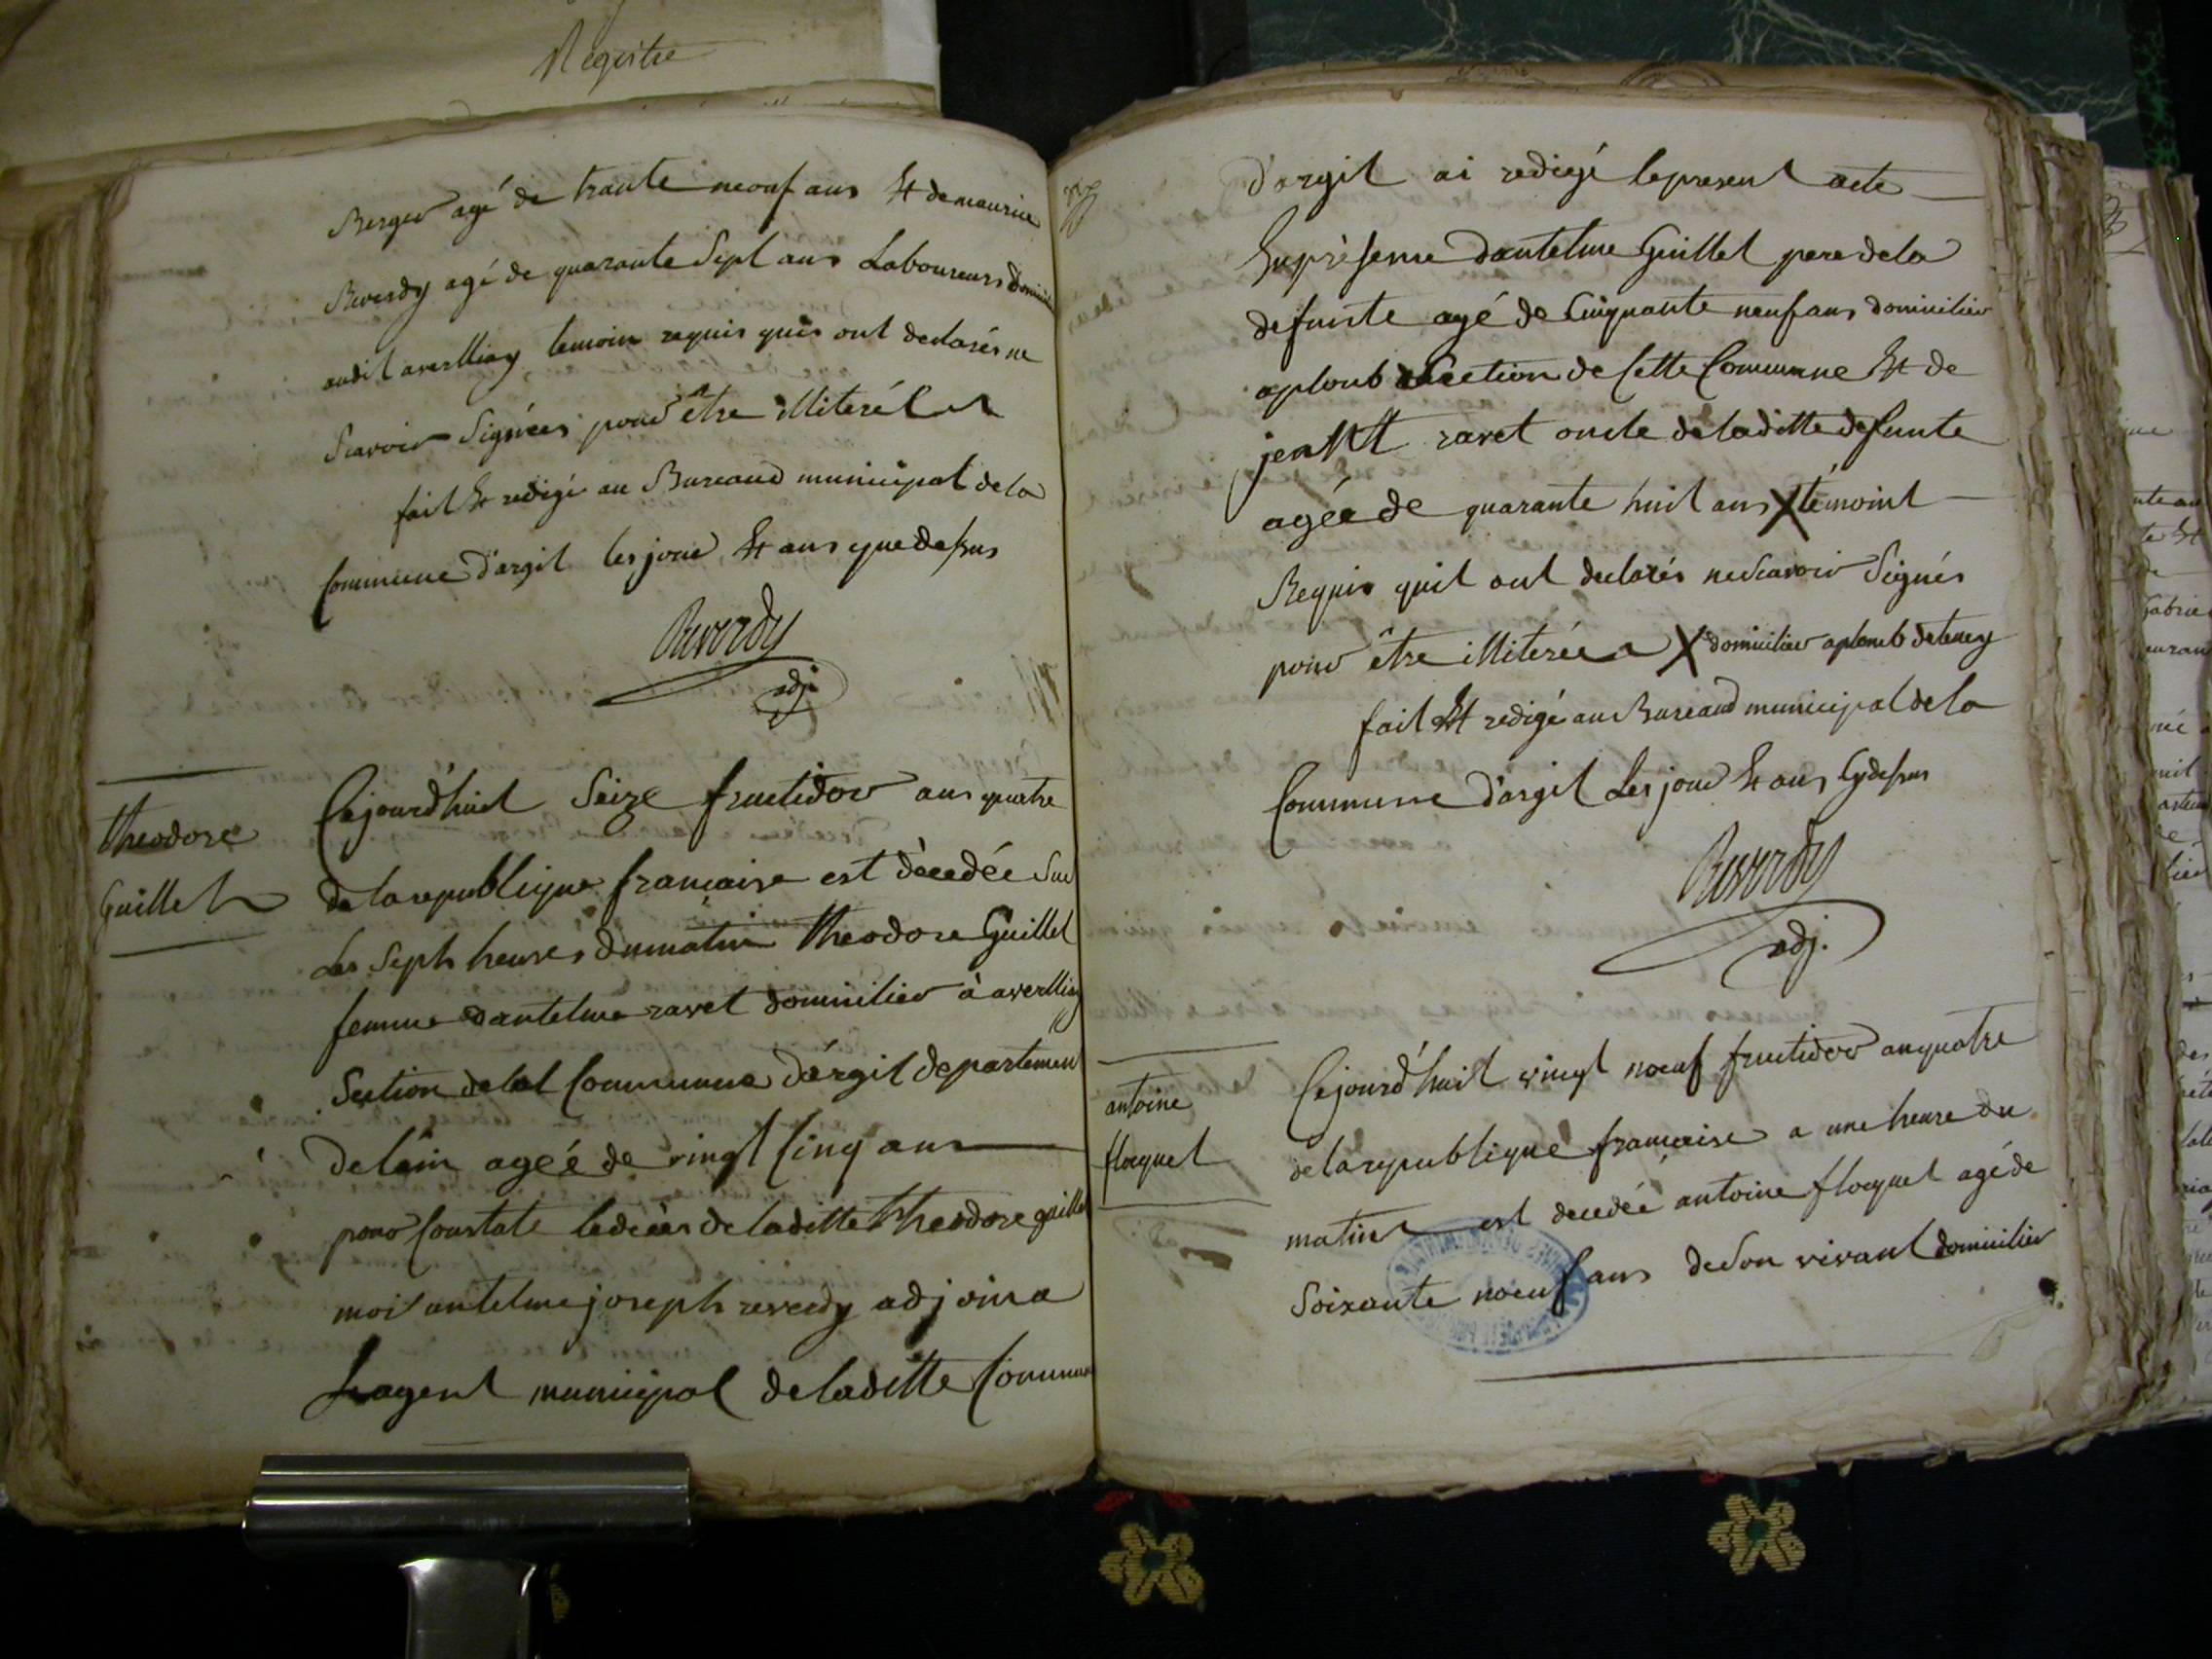 Registre
Berger agé de trante neouf ans Et de maurice
Reverdy agé de quarante Sept ans Laboureurs
audit averlliay temoin requis quis ont declarés ne
Scavoir Signéer pour être illiteré
fait Et redigé au Bureaud municipal de la
Commune d'argit les jour Et ans que desus
Reverdy
adj
theodore
Guillet
Cejourd'huit Seize fructidor ans quatre
de la republique francaise est décedée Sur
Les Sept heures du matin theodore Guillet
femme dantelme ravet domicilier à averlliay
Section de la Commune d'argit departement
de lain ageé de vingt Cinq ans
pour Constate le deces de laditte theodore guillet
moi antelme joseph reverdy adjoin a
Lagent municipal de laditte Commune
d'argit ai redigé le present acte
En présense dantelme Guillet pere de la
defunte agé de Cinquante neuf ans domicilier
a plomb Section de Cette Commune Et de
ravet oncle de laditte defunte
agée de quarante huit ans X témoint
Requis quil ont declarés ne Scavoir Signés
pour être illiterée X domicilier a plomb de tenay
fait Et redigé au Bureaud municipal de la
Commune d'argit Les jour Et ans Cydesus
Reverdy
adj.
antoine
floquet
Cejourd'huit vingt noeuf fructidor an quatre
de la republique francaise a une heure du
matint est decedée antoine flocquet agé de
Soixante noeuf ans de Son vivant domicilier